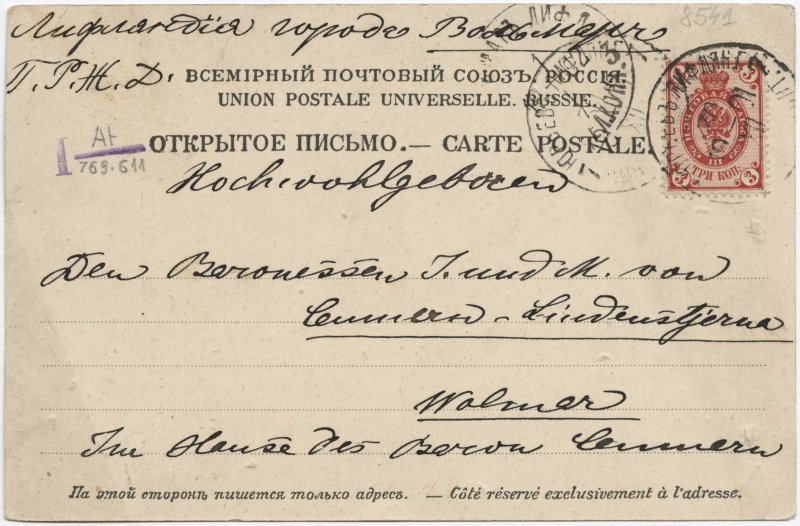 Лифляндія городъ Вольмаръ
П.Р.Ж.Д.
ВСЕМІРНЫЙ ПОЧТОВЫЙ СОЮЗЪ. РОССІЯ.
UNION POSTALE UNIVERSELLE. RUSSIE.
ОТКРЫТОЕ ПИСЬМО.— CARTE POSTALE.
8541
I
769.611
3 3
ТРИ КОП.
3 3
Hochwohlgeboren
Den Baronessen I. und M. von
Ceumern-Lindenstjerna
Wolmar
Im Hause des Baron Ceumern
На этой сторонѣ пишется только адресъ. — Côté réservé exclusivement à l'adresse.